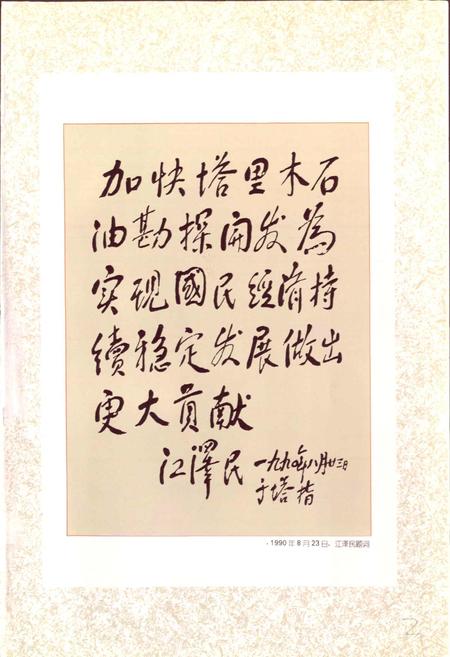 加快塔里木石
油勘探開发為
实現國民經済持
續稳定发展做出
更大贡献
江澤民 一九九〇年八月廿三日
于塔指
·1990年8月23日，江泽民题词
2